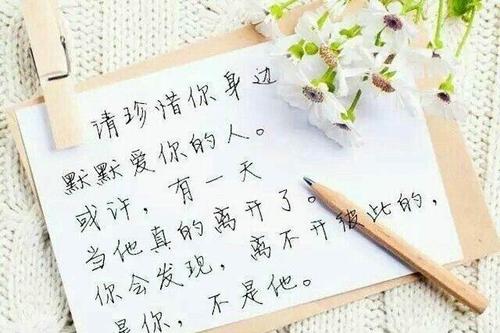 请珍惜你身边
默默爱你的人。
或许，有一天
当他真的离开了。
你会发现，离不开彼此的，
是你，不是他。